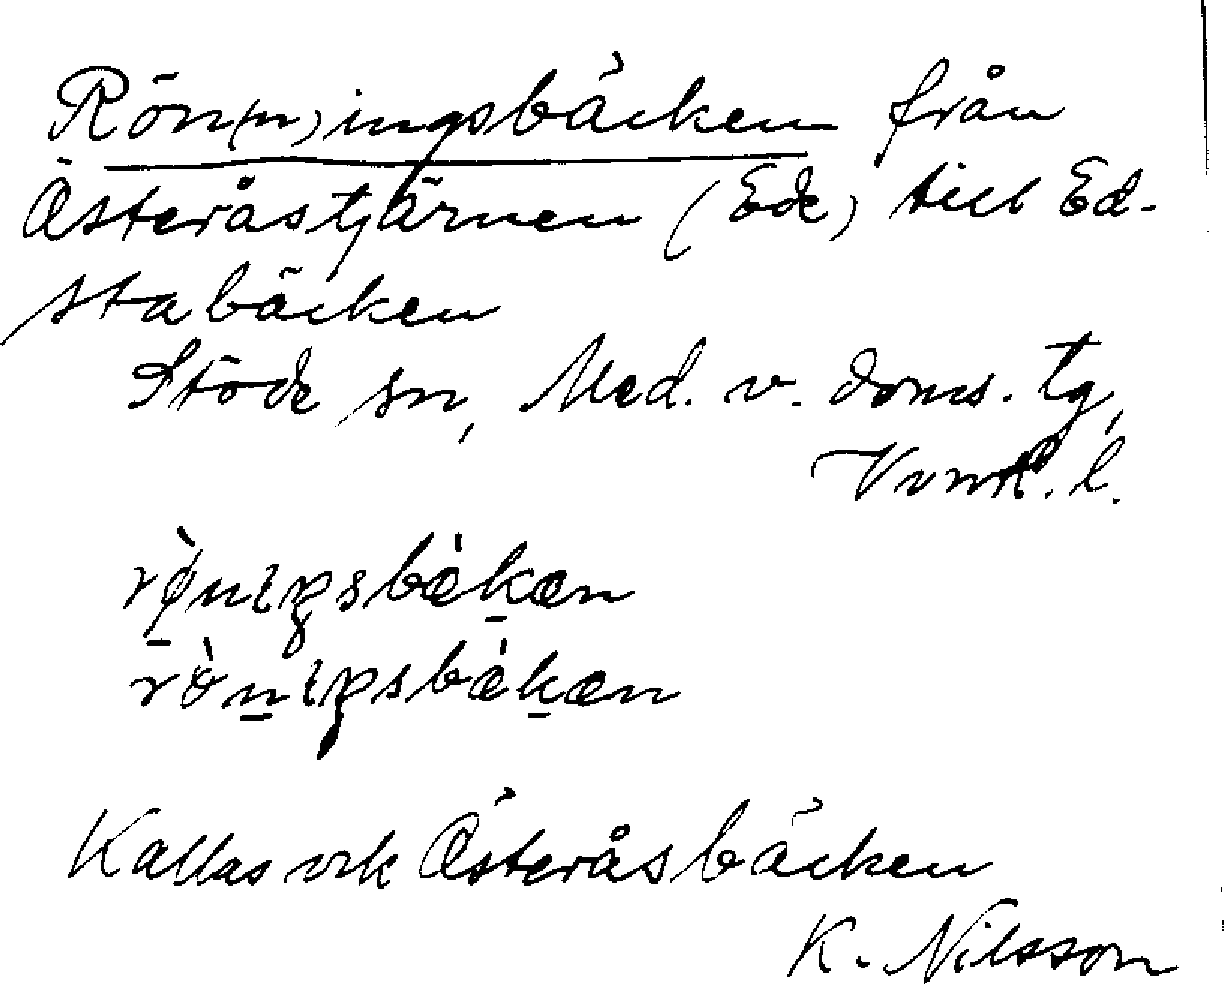 Rön(n)ingsbäcken från
Österåstjärnen (Ede) till Ed-
stabäcken
Stöde sn, Med. v. doms. tg,
Vvnrl. l.
rø̀nıŋsbæ̀kæn
rònıŋsbæ̀kæn
Kallas ock Österåsbäcken
K. Nilsson